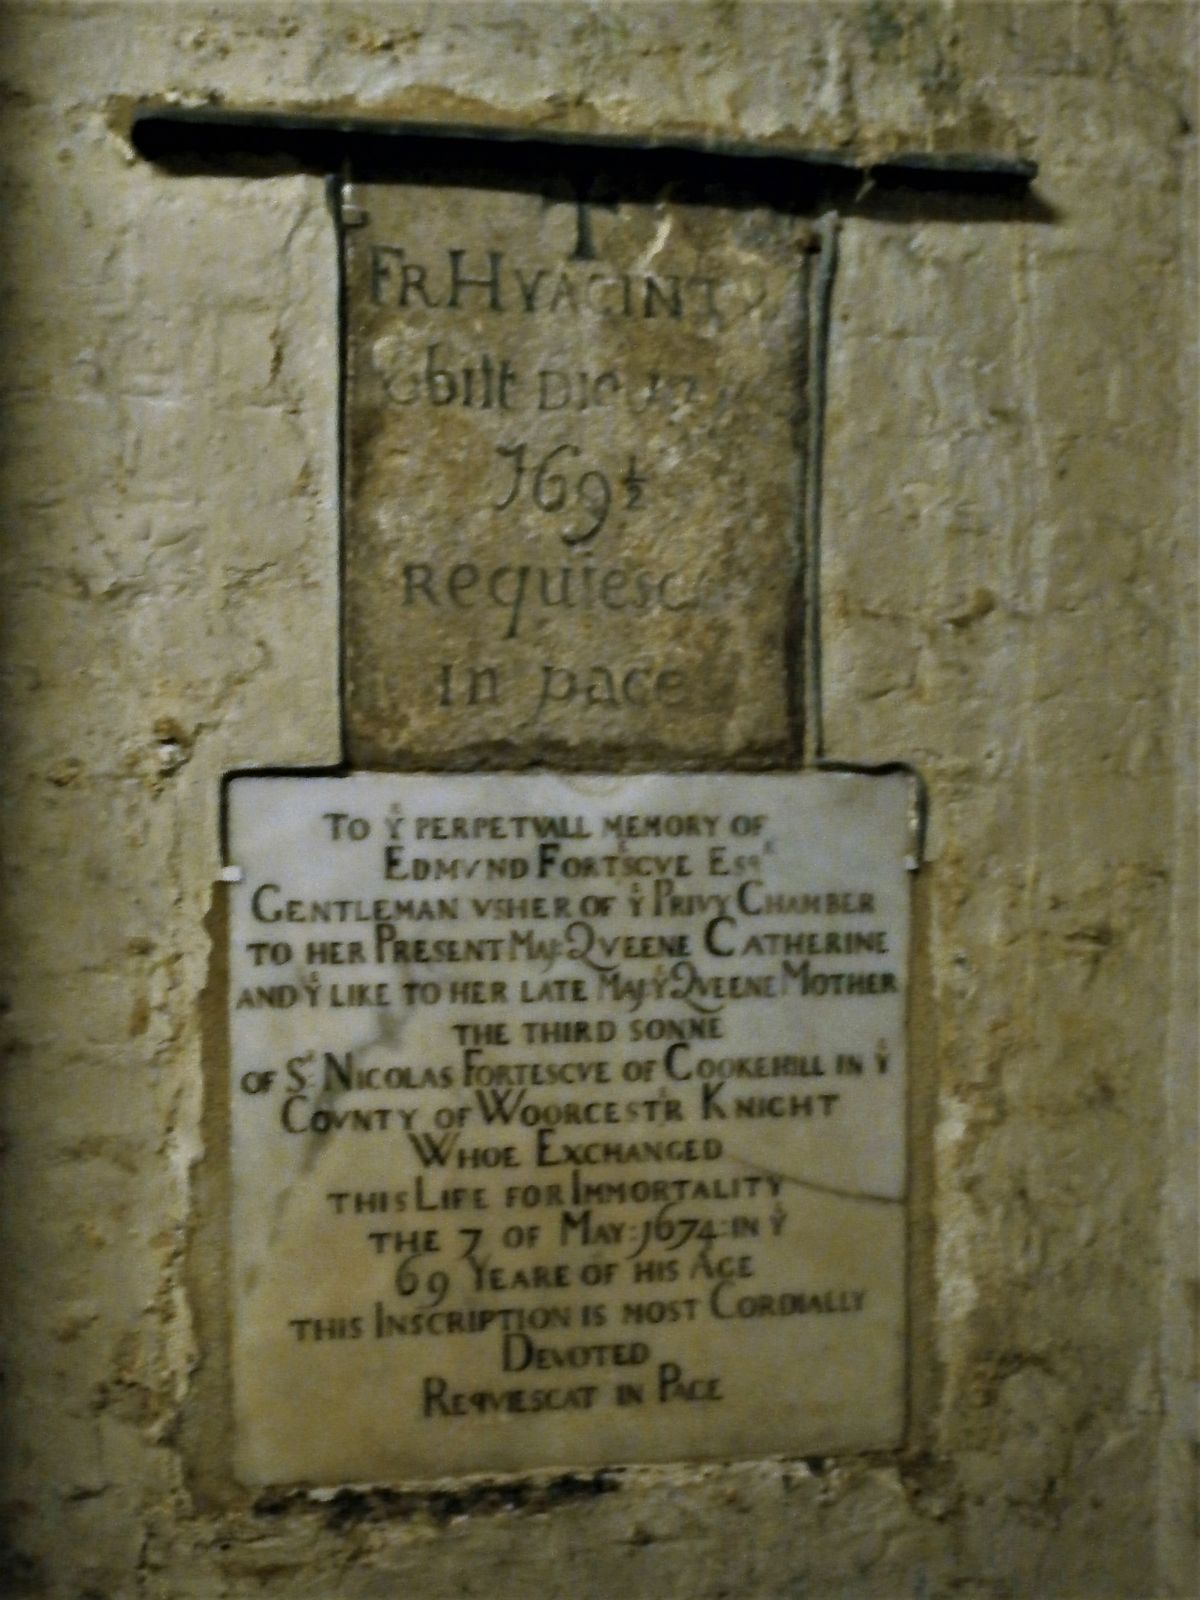 FR HYACINT
Obiit Die
169½
Requiesc
in pace
TO Yᴱ PERPETVALL MEMORY OF
EDMVND FORTESCVE ESQᴿ
GENTLEMAN VSHER OF Yᴱ PRIVY CHAMBER
TO HER PRESENT MAJ: QVEENE CATHERINE
AND Yᴱ LIKE TO HER LATE MAJ:Yᵀ QVEENE MOTHER
THE THIRD SONNE
OF Sᴿ NICOLAS FORTESCVE OF COOKEHILL IN Yᴱ
COVNTY OF WOORCESTᴱR KNIGHT
WHOE EXCHANGED
THIS LIFE FOR IMMORTALITY
THE 7 OF MAY: 1674: IN Yᴱ
69 YEARE OF HIS AGE
THIS INSCRIPTION IS MOST CORDIALLY
DEVOTED
REQVIESCAT IN PACE